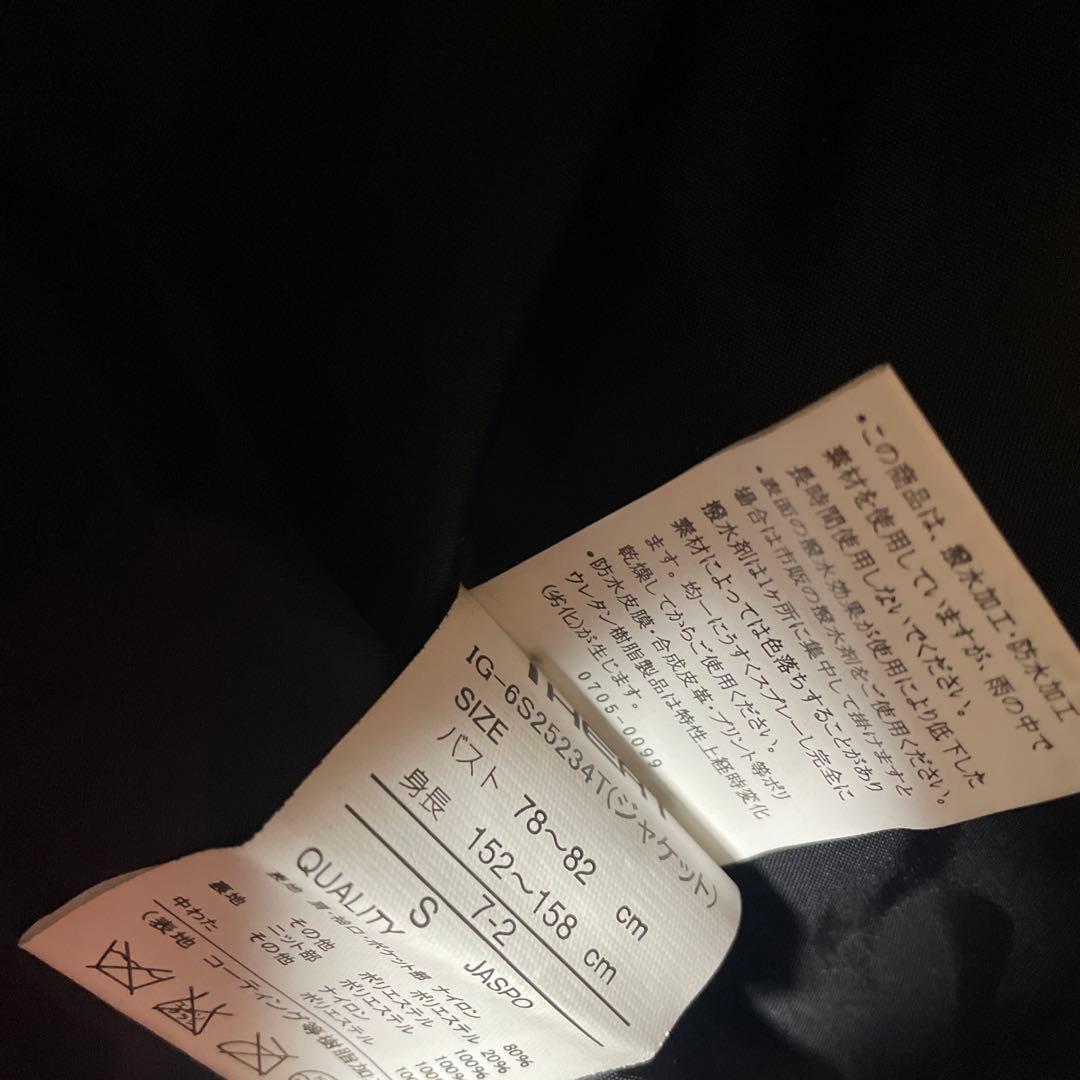 •この商品は、撥水加工・防水加工
素材を使用していますが、雨の中で
長時間使用しないでください。
•表面の撥水効果が使用により低下した
場合は市販の撥水剤をご使用ください。
撥水剤は1ヶ所に集中して掛けますと
素材によっては色落ちすることがあり
ます。均一にうすくスプレーし完全に
乾燥してからご使用ください。
•防水皮膜・合成皮革・プリント等ポリ
ウレタン樹脂製品は特性上経時変化
(劣化)が生じます。
0705-0099
IG-6S25234T(ジャケット)
SIZE
バスト 78〜82 cm
身長 152〜158 cm
7-2
S JASPO
QUALITY
表地 肩・袖口・ポケット部 ナイロン 80%
ポリエステル 20%
その他 ポリエステル 100%
裏地 ニット部 ナイロン 100%
その他 ポリエステル
中わた
(表地 コーティング等樹脂加